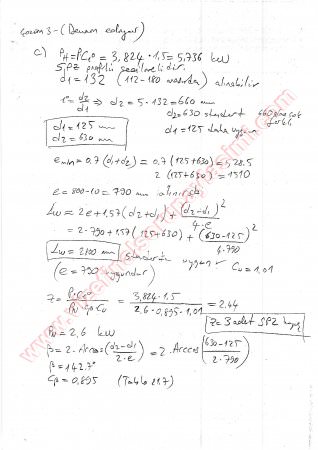 Çözüm 3 - (Devam ediyor)
c) PH = P.C_B = 3,824 . 1,5 = 5,736 kW
SPZ profili seçilmelidir.
d1 = 132 (112-180 arasında) alınabilir
i = d2/d1 ⇒ d2 = 5 . 132 = 660 mm
d1 = 125 mm
d2 = 630 mm
d2 = 630 standart
d1 = 125 daha uygun
emin = 0,7 (d1+d2) = 0,7 (125+630) = 528.5
2 (125+630) = 1510
e = 800-10 = 790 mm alınırsa
Lw = 2e + 1,57 (d2+d1) + (d2-d1)²/4.e
= 2.790 + 1,57 (125+630) + (630-125)²/4.790
Lw = 2800 mm standarda uygun
(e = 790 uygundur) Cu = 1,01
Z = = 3,824 . 1,5 / 2,6 . 0,895 . 1,01 = 2,44
Z = 3 adet SPZ
PN = 2,6 kW
β = 2. Arccos (d2-d1 / 2.e) = 2. Arccos (630-125 / 2.790)
β = 142.7°
Cβ = 0,895 (Tablo 21.7)